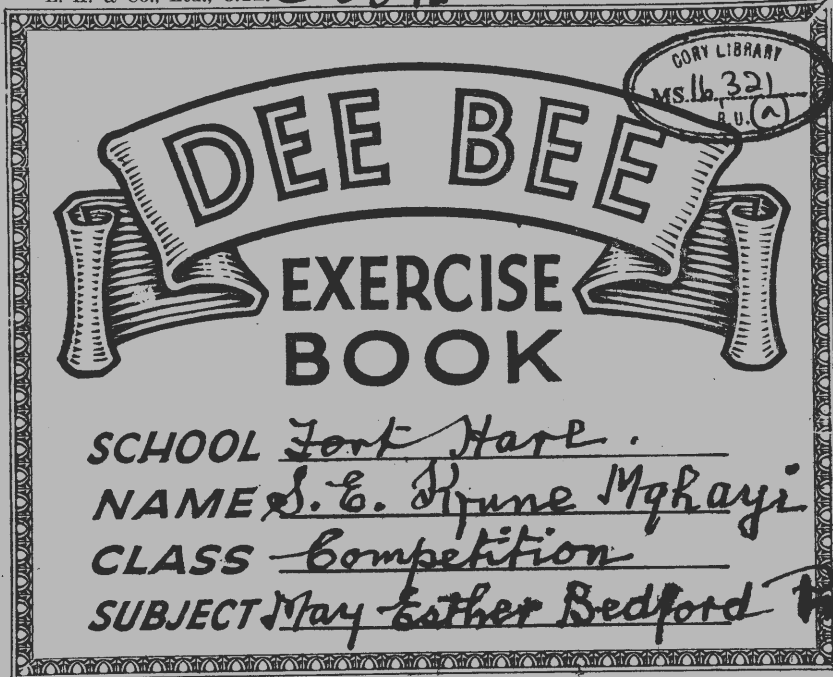 CORY LIBRARY
MS. 16 321
R.U. (a)
DEE BEE
EXERCISE
BOOK
SCHOOL Fort Hare.
NAME S. E. Krune Mqhayi
CLASS Competition
SUBJECT May Esther Bedford